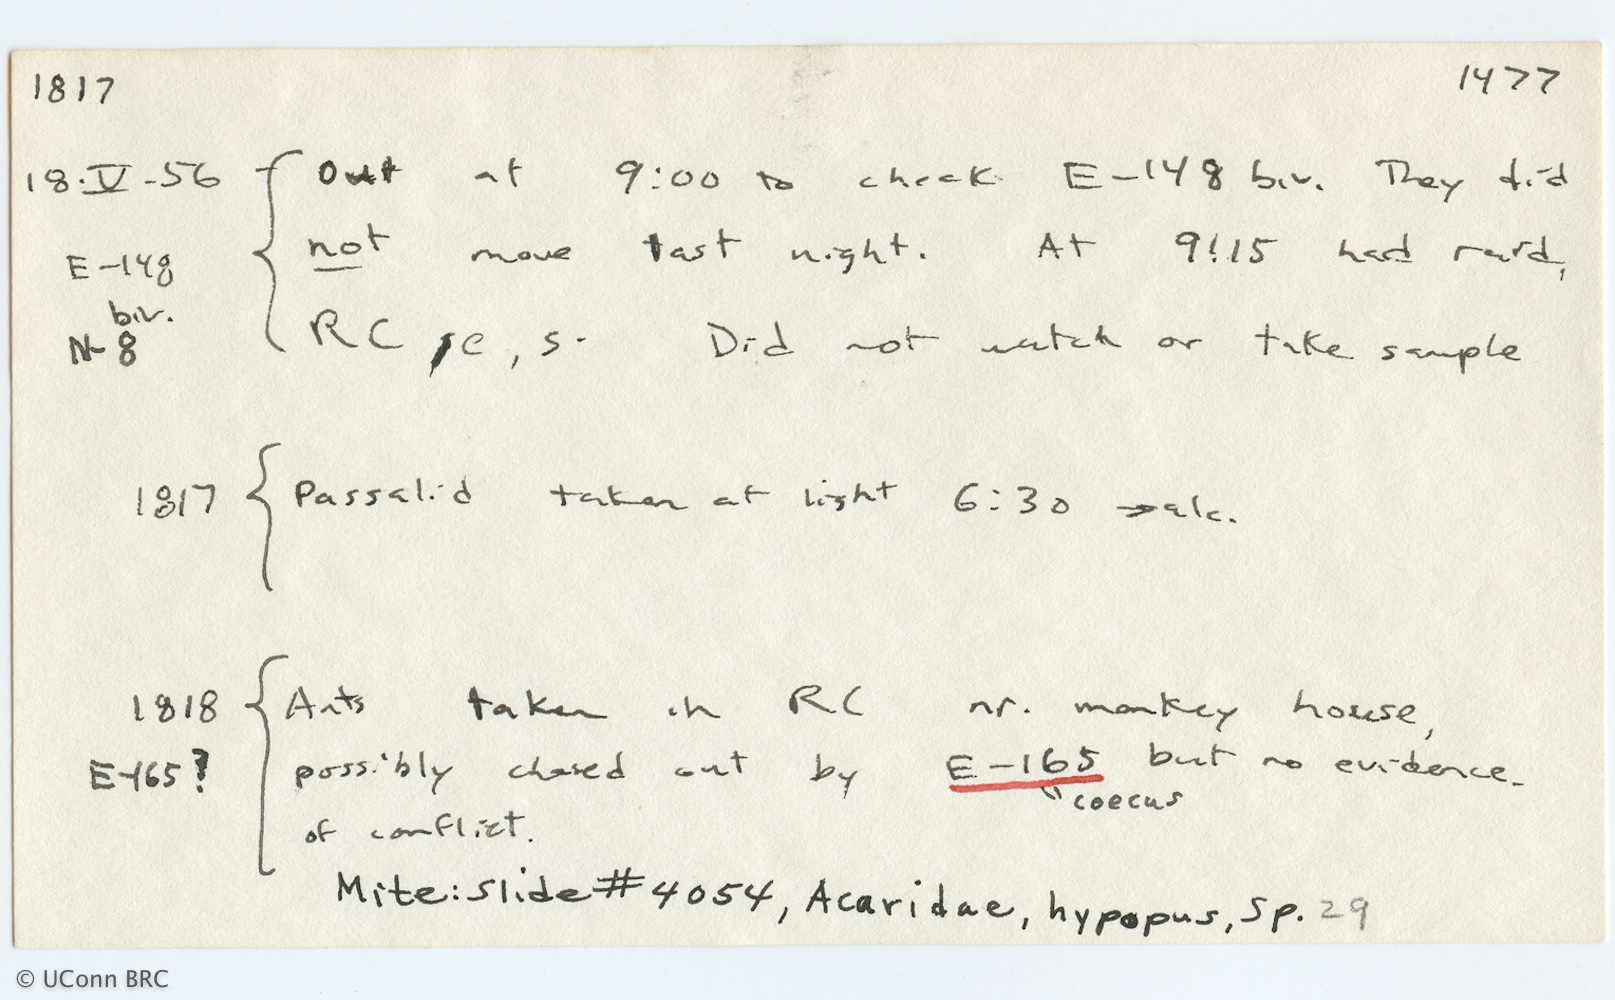 1817 1477
18.V-56 Out at 9:00 to check E-148 biv. They did
E-148 not move last night. At 9:15 had raid,
biv.
N-8 RC, e, s. Did not watch or take sample
1817 Passalid taken at light 6:30 → alc.
1818 Ants taken in RC nr. monkey house,
E-165? possibly chased out by E-165 but no evidence
coecus
of conflict.
Mite: Slide #4054, Acaridae, hypopus, Sp. 29
© UConn BRC